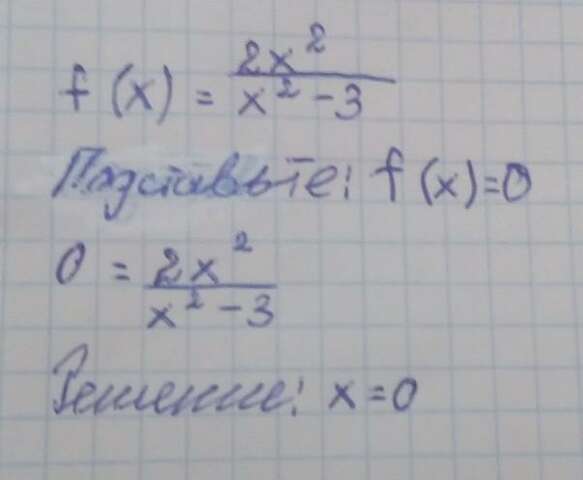 f(x) = 2x² / x² - 3
Подставьте: f(x)=0
0 = 2x² / x² - 3
Решение: x=0